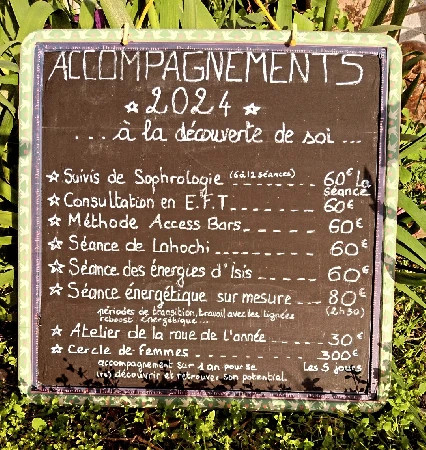 ACCOMPAGNEMENTS
☆ 2024 ☆
...à la découverte de soi...
☆ Suivis de Sophrologie (6 à 12 séances) --- 60€ la séance
☆ Consultation en E.F.T_ _ _ _ _ _ 60€
☆ Méthode Access Bars_ _ _ _ _ 60€
☆ Séance de Lahochi _ _ _ _ _ _ 60€
☆ Séance des énergies d'Isis _ _ _ _ 60€
☆ Séance énergétique sur mesure _ _ _ 80€
périodes de transition, travail avec les lignées (2h30)
reboost énergétique...
☆ Atelier de la roue de l'année _ _ _ 30€
☆ Cercle de femmes _ _ _ _ _ _ _ 300€
accompagnement sur 1 an pour se Les 5 jours
(re)découvrir et retrouver son potentiel